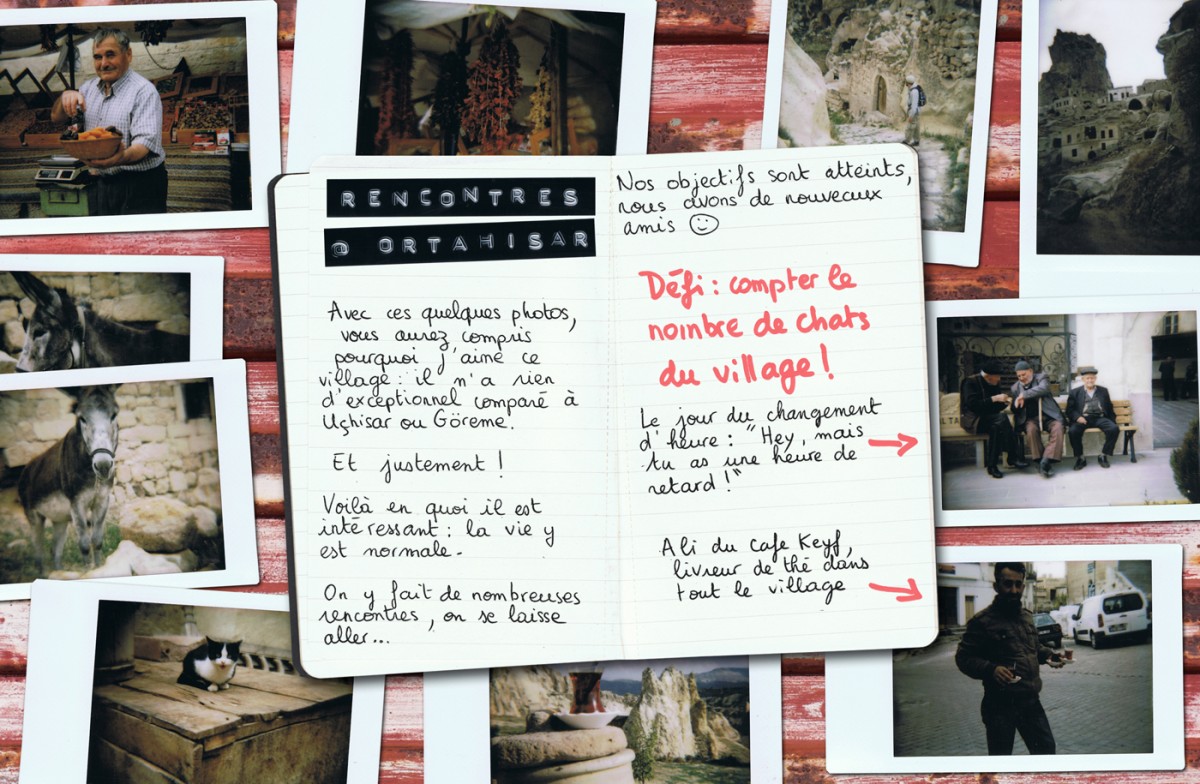 RENCONTRES
@ ORTAHISAR
Avec ces quelques photos,
vous aurez compris
pourquoi j'aime ce
village : il n'a rien
d'exceptionnel comparé à
Uçhisar ou Göreme.
Et justement !
Voilà en quoi il est
intéressant : la vie y
est normale.
On y fait de nombreuses
rencontres, on se laisse
aller...
Nos objectifs sont atteints,
nous avons de nouveaux
amis ☺
Défi : compter le
nombre de chats
du village !
Le jour du changement
d'heure : "Hey, mais
tu as une heure de
retard !"
Ali du Cafe Keyf,
livreur de thé dans
tout le village